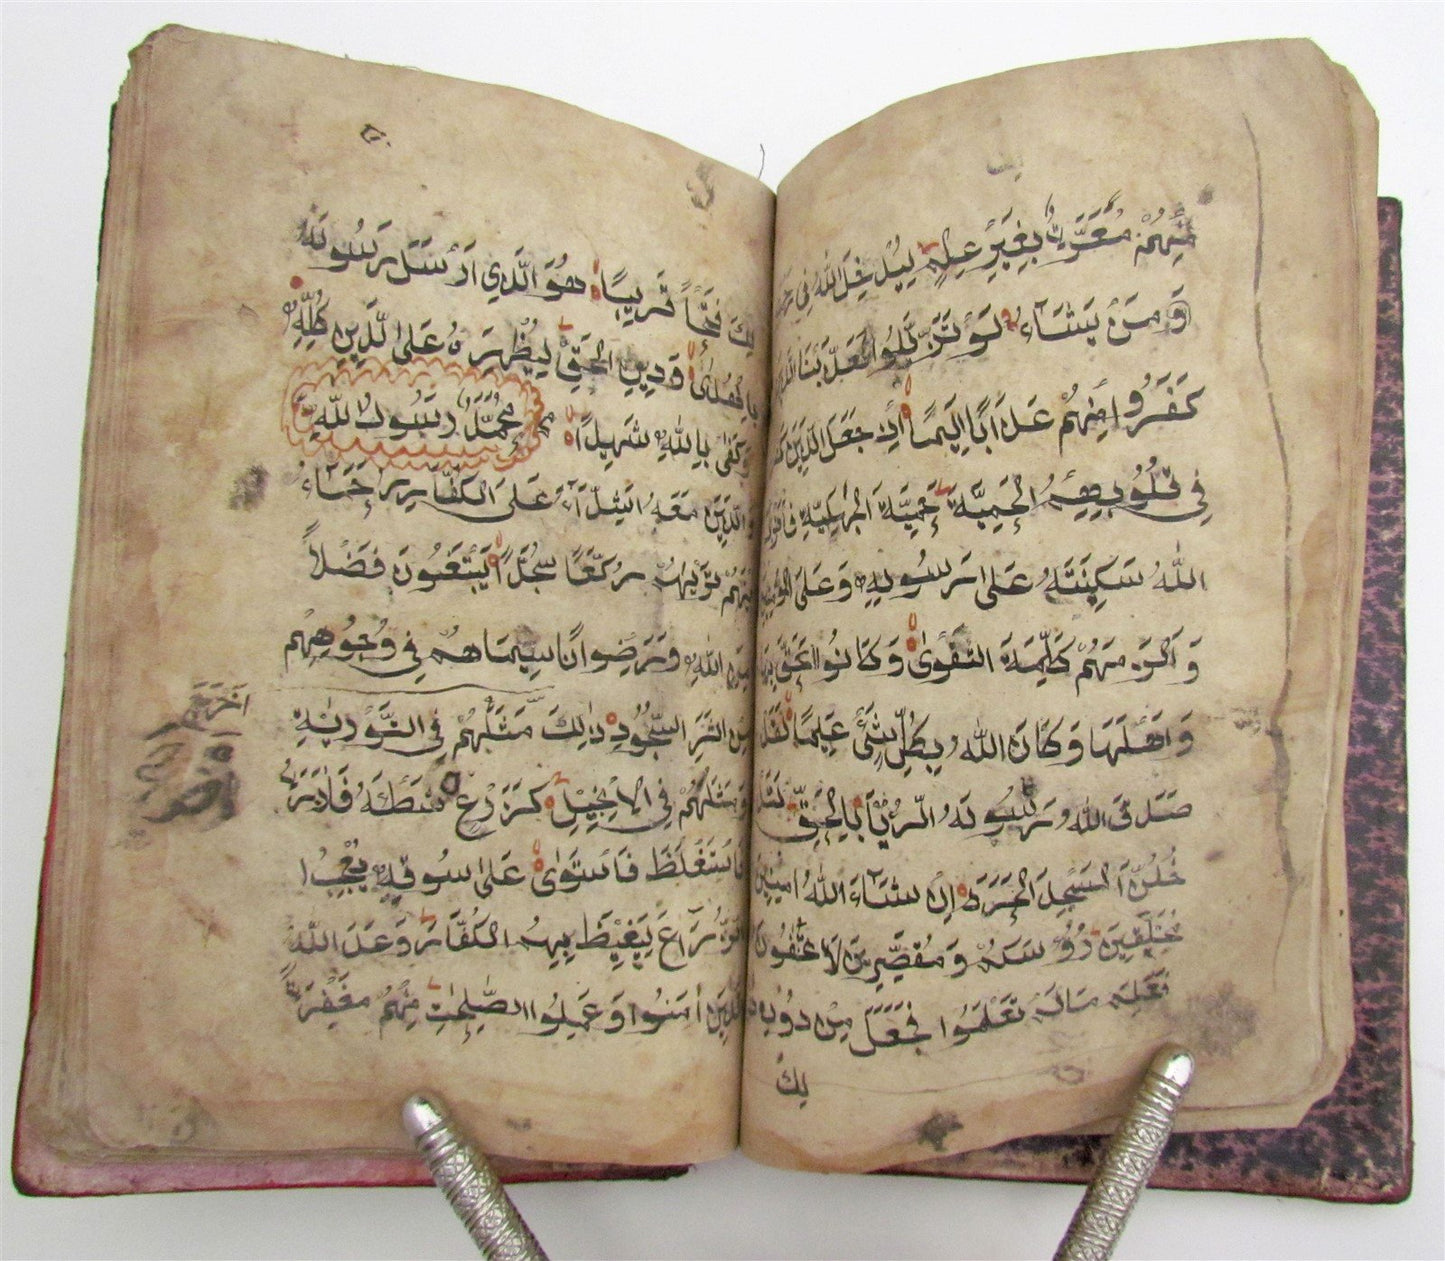 مِنْهُمْ مَعَرَّةٌ بِغَيْرِ عِلْمٍ لِيُدْخِلَ اللهُ فِي
وَ مَنْ يَشَاءُ لَوْ تَزَيَّلُوا لَعَذَّبْنَا الذين
كَفَرُوا مِنْهُمْ عَذَابًا أَلِيمًا إِذْ جَعَلَ الَّذِينَ
فِي قُلُوبِهِمُ الْحَمِيَّةَ حَمِيَّةَ الْجَهِلِيَّةِ فأنزل
اللهُ سَكِينَتَهُ عَلَى رَسُولِهِ وَعَلَى المؤمنين
وَ الْزَمَهُمْ كَلِمَةَ التَّقْوَىٰ وَ كَانُوا احَقَّ بِهَا
وَ اَهْلَهَا وَ كَانَ اللهُ بِكُلِّ شَيْءٍ عَلِيمًا لَقَدْ
صَدَقَ اللهُ رَسُولَهُ الرُّءْيَا بِالْحَقِّ لَتَدْ
خُلُنَّ الْمَسْجِدَ الْحَرَمَ إِنْ شَاءَ اللهُ امِنِينَ
مُحَلِّقِينَ رُءُ سَكُمْ وَ مُقَصِّرِينَ لَا تَخَفُونَ
فَعَلِمَ مَالَمْ تَعْلَمُوا فَجَعَلَ مِنْ دُونِ ذ
لِكَ
لِكَ فَتْحًا قَرِيبًا هُوَ الَّذِي اَرْسَلَ رَسُولَهُ
بِالْهُدَىٰ وَ دِينِ الْحَقِّ لِيُظْهِرَهُ عَلَى الدِّينِ كُلِّهِ
وَكَفَىٰ بِاللهِ شَهِيدًا مُحَمَّدٌ رَسُولُ اللهِ
وَالَّذِينَ مَعَهُ اَشِدَّاءُ عَلَى الْكُفَّارِ رُحَمَاءُ
بَيْنَهُمْ تَرَيهُمْ رُكَّعًا سُجَّدًا يَبْتَغُونَ فَضْلًا
مِنَ اللهِ وَ رِضْوَانًا سِيمَاهُمْ فِي وُجُوهِهِمْ
مِنْ اَثَرِ السُّجُودِ ذَلِكَ مَثَلُهُمْ فِي التَّوْرَيٰةِ
وَمَثَلُهُمْ فِي الْاِنْجِيلِ كَزَرْعٍ شَطْئَهُ فَآزَرَهُ
فَاسْتَغْلَظَ فَاسْتَوَىٰ عَلَى سُوقِهِ يُعْجِبُ ا
لزُّرَّاعَ لِيَغِيظَ بِهِمُ الْكُفَّارَ وَعَدَ اللهُ
الَّذِينَ اَمَنُوا وَ عَمِلُوا الصَّلِحَتِ مِنْهُمْ مَغْفِرَةً
اَخْرَجَ